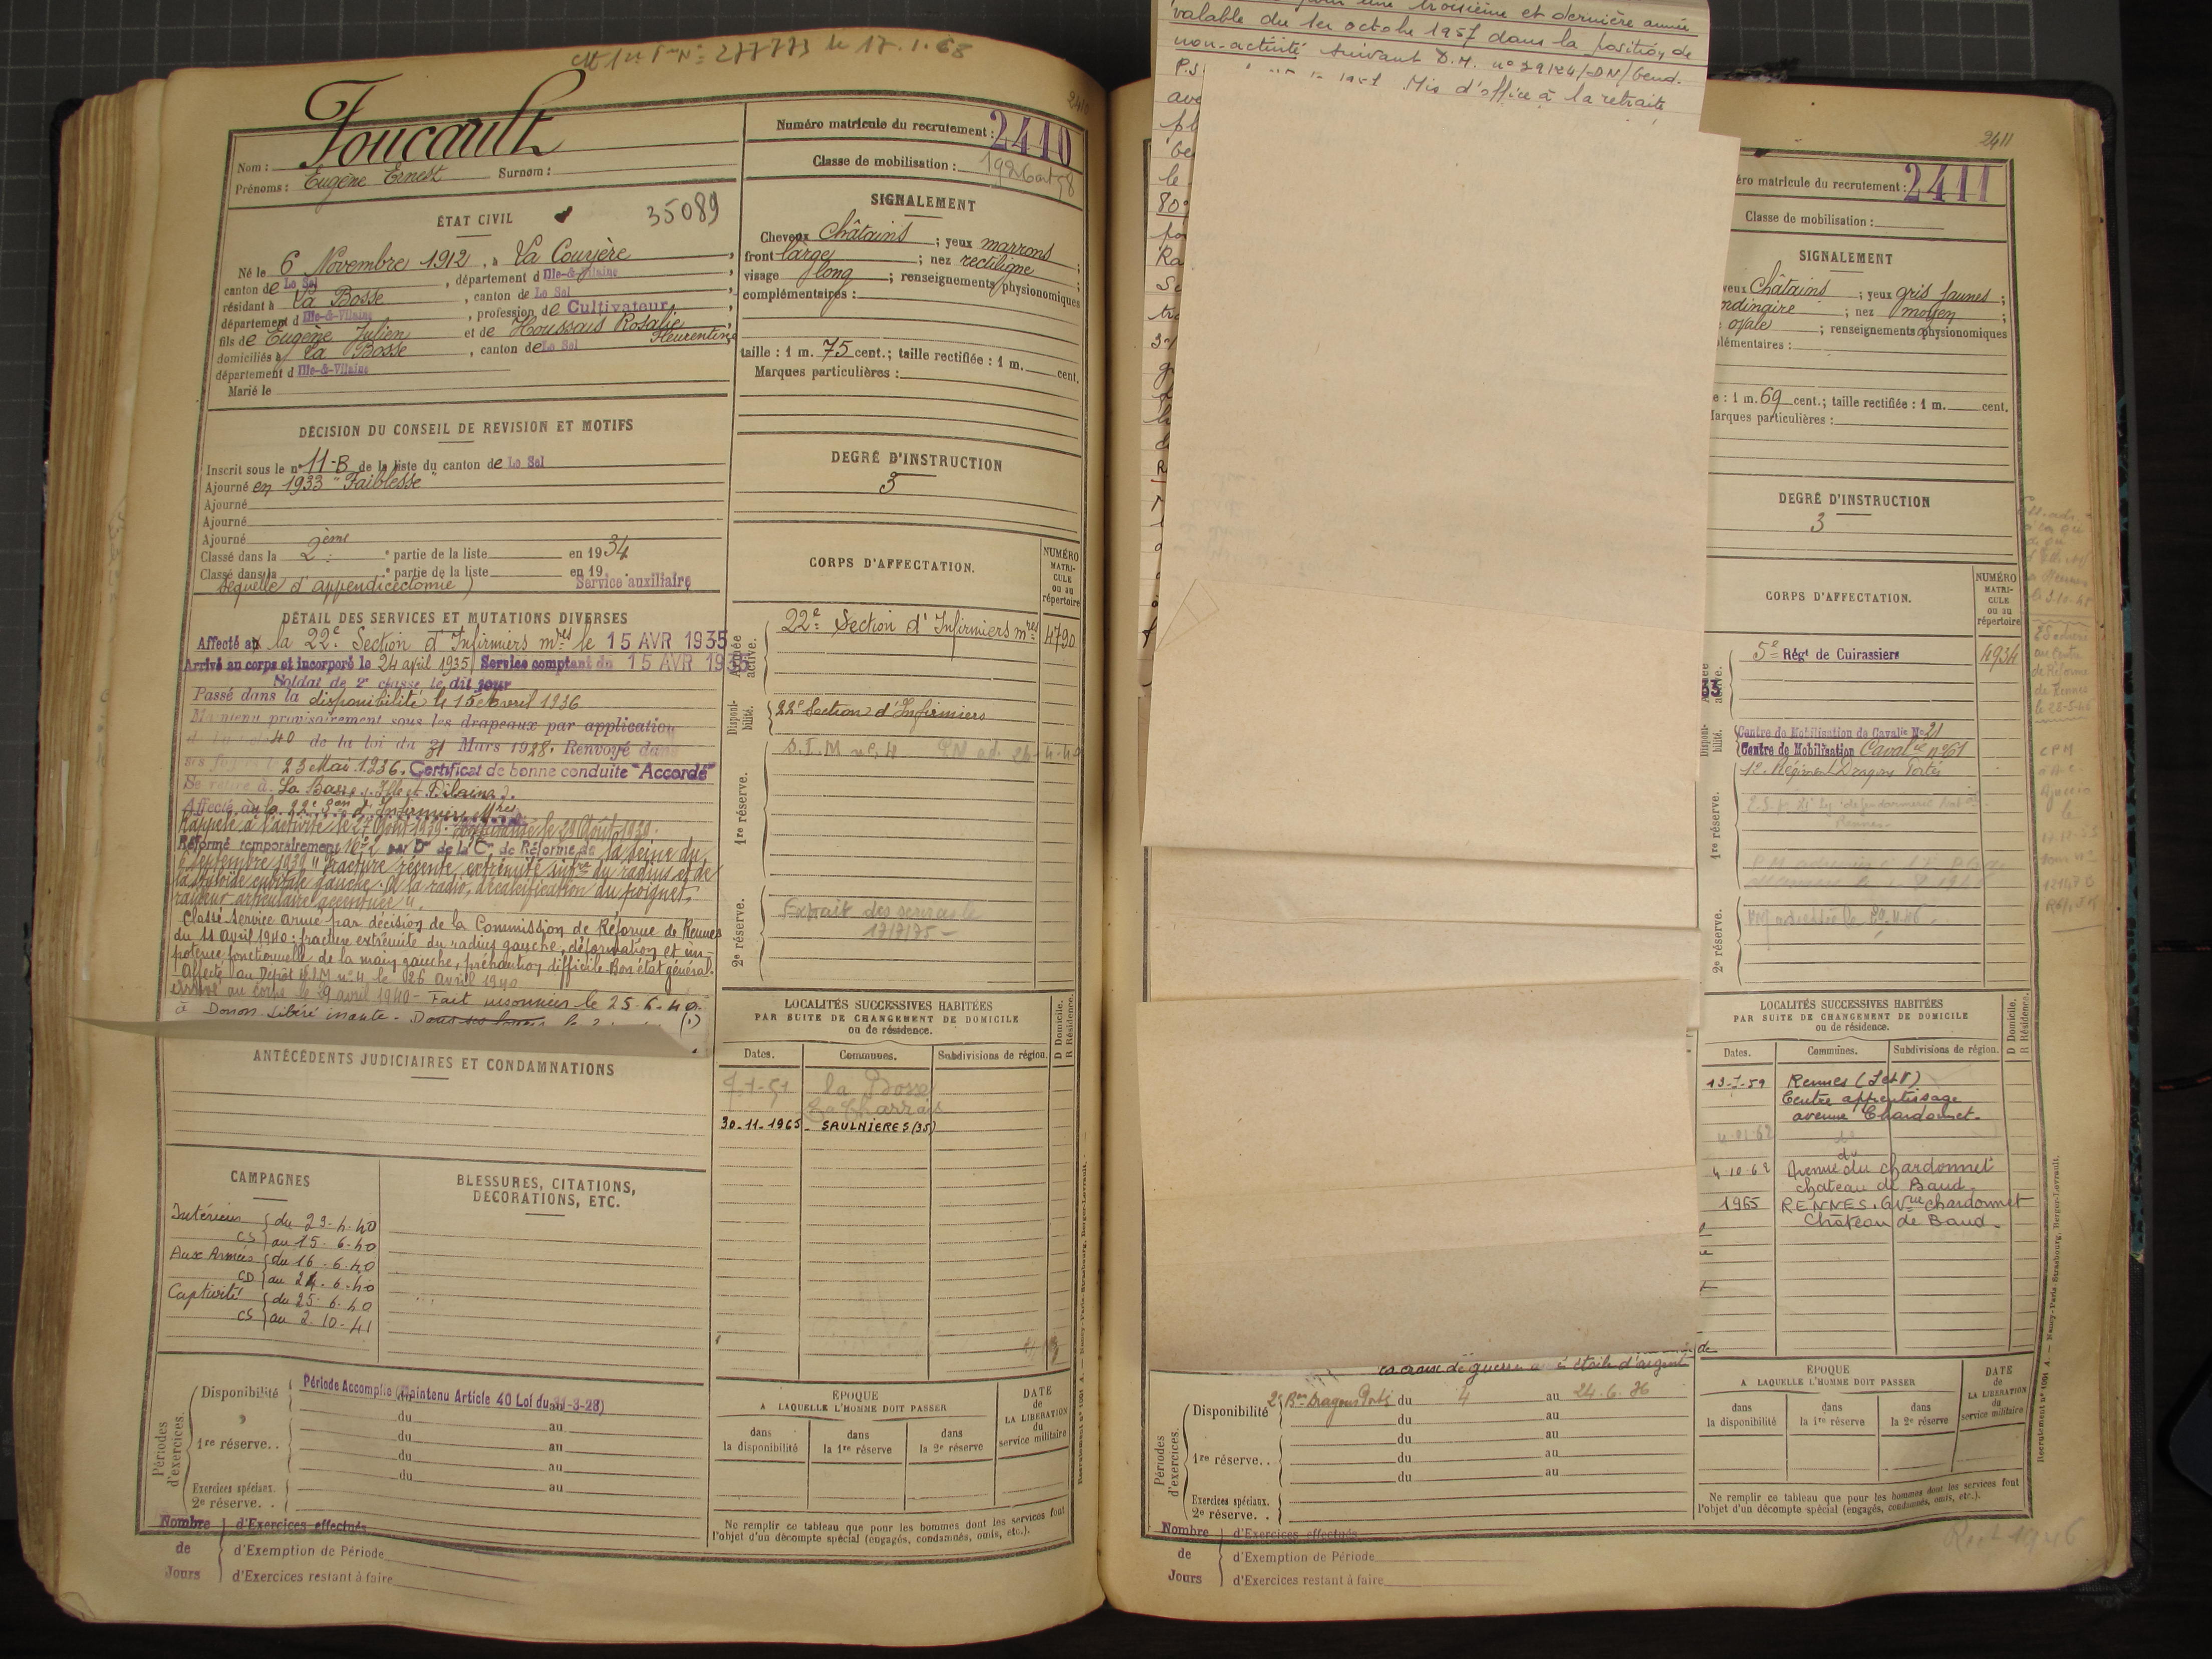 le 17.1.68
2410
Foucault
Nom :
Prénoms : Eugène Ernest Surnom :
ÉTAT CIVIL
35089
Né le 6 Novembre 1912, à La Couyère,
canton de Le Sel, département d Ille-&-Vilaine,
résidant à La Bosse, canton de Le Sel,
département d Ille-&-Vilaine, profession de Cultivateur,
fils de Eugène Julien et de Houssais Rosalie
Fleurentine
domiciliés à La Bosse, canton de Le Sel
département d Ille-&-Vilaine
Marié le
DÉCISION DU CONSEIL DE REVISION ET MOTIFS
Inscrit sous le n° 11-B de la liste du canton de Le Sel
Ajourné en 1933 "Faiblesse"
Ajourné
Ajourné
Ajourné
Classé dans la 2ème partie de la liste en 1934
Classé dans la partie de la liste en 19
Sequelle d'appendicectomie) Service auxiliaire
DÉTAIL DES SERVICES ET MUTATIONS DIVERSES
Affecté à la 22e Section d'Infirmiers mres le 15 AVR 1935
Arrivé au corps et incorporé le 24 avril 1935 Service comptant du 15 AVR 1935
Soldat de 2e classe le dit jour
Passé dans la disponibilité le 15 avril 1936
Maintenu provisoirement sous les drapeaux par application
40 de la loi du 31 Mars 1928. Renvoyé dans
ses foyers le 23 Mai 1936. Certificat de bonne conduite "Accordé"
Se retire à La Bosse (Ille et Vilaine).
Affecté à la 22e Son d'Infirmiers Mres
Rappelé à l'activité le 27 Août 1939. le 29 Août 1939.
Réformé temporairement N° 2 par Don de la Con de Réforme de la Seine du
6 Septembre 1939 "Fracture récente, extrémité infre du radius et de
la styloïde cubitale gauche. A la radio, décalcification du poignet,
raideur articulaire accentuée".
Classé Service armé par décision de la Commission de Réforme de Rennes
du 11 avril 1940 : fracture extrémité du radius gauche, déformation et im-
potence fonctionnelle de la main gauche, préhension difficile. Bon état général.
Affecté au Dépôt S.I.M n° 4 le 26 avril 1940
Arrivé au corps le 29 avril 1940 - Fait prisonnier le 25.6.40
à Donon. Libéré (1)
ANTÉCÉDENTS JUDICIAIRES ET CONDAMNATIONS
CAMPAGNES
Intérieur CS du 29-4-40 au 15-6-40
Aux Armées CD du 16-6-40 au 24-6-40
Captivité CS du 25-6-40 au 2-10-41
BLESSURES, CITATIONS,
DÉCORATIONS, ETC.
Périodes d'exercices.
Disponibilité Période Accomplie (Maintenu Article 40 Loi du 31-3-28)
du au
1re réserve. . du au
du au
du au
Exercices spéciaux.
2e réserve. .
Nombre de Jours
d'Exercices effectués
d'Exemption de Période
d'Exercices restant à faire
Numéro matricule du recrutement : 2410
Classe de mobilisation :
SIGNALEMENT
Cheveux Châtains ; yeux marrons ;
front large ; nez rectiligne ;
visage long ; renseignements physionomiques
complémentaires :
taille : 1 m. 75 cent.; taille rectifiée : 1 m. cent.
Marques particulières :
DEGRÉ D'INSTRUCTION
3
CORPS D'AFFECTATION.
NUMÉRO MATRI-CULE ou au répertoire
Armée active.
22e Section d'Infirmiers mres 4790
Disponi-bilité.
22e Section d'Infirmiers
1re réserve.
S.I.M n° 4
2e réserve.
Extrait des services le
17/7/75
LOCALITÉS SUCCESSIVES HABITÉES
PAR SUITE DE CHANGEMENT DE DOMICILE
ou de résidence.
D Domicile. R Résidence.
Dates. Communes. Subdivisions de région.
7-1-51 la Bosse
30-11-1965 SAULNIERES (35)
ÉPOQUE
A LAQUELLE L'HOMME DOIT PASSER
dans la disponibilité
dans la 1re réserve
dans la 2e réserve
DATE de LA LIBÉRATION du service militaire
Ne remplir ce tableau que pour les hommes dont les services font
l'objet d'un décompte spécial (engagés, condamnés, omis, etc.).
pour une troisième et dernière année
valable du 1er octobre 1957 dans la position de
non-activité suivant D.M. n° 29124/DN/Gend.
Mis d'office à la retraite
2411
Numéro matricule du recrutement : 2411
Classe de mobilisation :
SIGNALEMENT
Châtains ; yeux gris jaunes ;
ordinaire ; nez moyen ;
ovale ; renseignements physionomiques
complémentaires :
1 m. 69 cent.; taille rectifiée : 1 m. cent.
Marques particulières :
DEGRÉ D'INSTRUCTION
3
CORPS D'AFFECTATION.
NUMÉRO MATRI-CULE ou au répertoire
5e Régt de Cuirassiers 4934
Disponi-bilité.
Centre de Mobilisation de Cavalie N° 21
Centre de Mobilisation Cavalie n° 61
1re réserve.
1er Régiment Dragons Portés
Rennes
2e réserve.
LOCALITÉS SUCCESSIVES HABITÉES
PAR SUITE DE CHANGEMENT DE DOMICILE
ou de résidence.
D Domicile. R Résidence.
Dates. Communes. Subdivisions de région.
Rennes (I et V)
Centre apprentissage
avenue Chardonnet
4-10-62 Avenue du chardonnet
chateau de Baud
1965 RENNES. 6 Nue chardonnet
Château de Baud
la croix de guerre avec étoile d'argent
Périodes d'exercices.
Disponibilité 2e Bon Dragons Portés du 4 au 24.6.36
du au
1re réserve. . du au
du au
du au
Exercices spéciaux.
2e réserve. .
Nombre de Jours
d'Exercices effectués
d'Exemption de Période
d'Exercices restant à faire
ÉPOQUE
A LAQUELLE L'HOMME DOIT PASSER
dans la disponibilité
dans la 1re réserve
dans la 2e réserve
DATE de LA LIBÉRATION du service militaire
Ne remplir ce tableau que pour les hommes dont les services font
l'objet d'un décompte spécial (engagés, condamnés, omis, etc.).